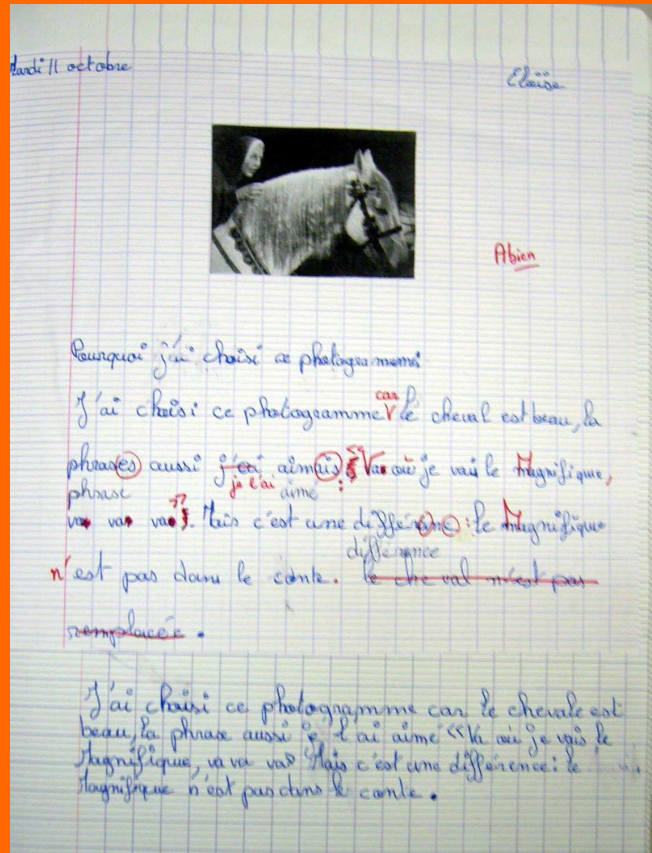 Mardi 11 octobre
Eloïse
A bien
Pourquoi j'ai choisi ce photogramme:
car
J'ai choisi ce photogramme le cheval est beau, la
phrases aussi j'ai aimais : Va où je vais le Magnifique,
phrase je l'ai aimé :
va va va ". Mais c'est une différence : le Magnifique
différence
n'est pas dans le conte. le cheval n'est pas
remplacée.
J'ai choisi ce photogramme car le chevale est
beau, la phrase aussi je l'ai aimé "Va où je vais le
Magnifique, va va va" Mais c'est une différence : le
Magnifique n'est pas dans le conte.